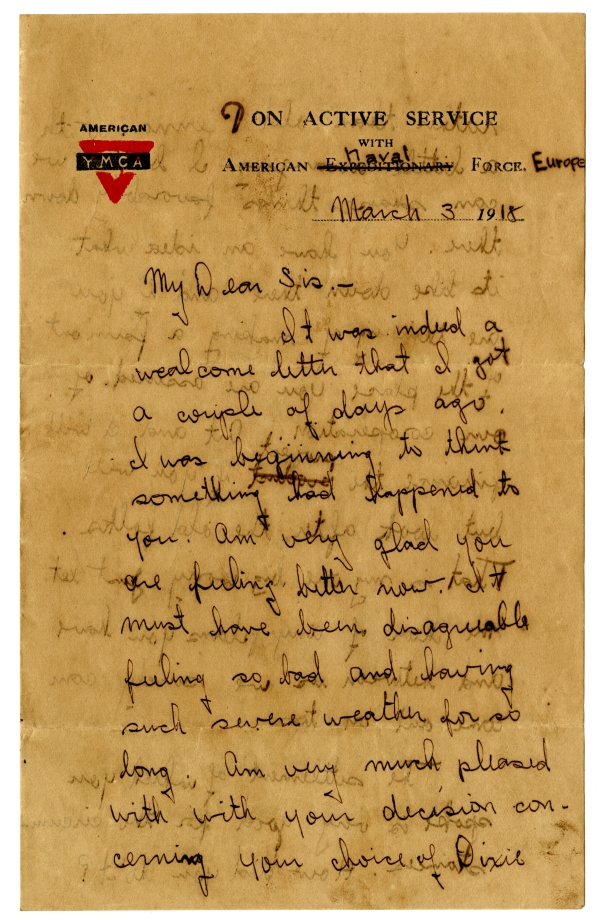 AMERICAN
YMCA
ON ACTIVE SERVICE
WITH
naval
AMERICAN EXPEDITIONARY FORCE. Europe
March 3 1918
My Dear Sis.—
It was indeed a
wealcome letter that I got
a couple of days ago.
I was beginning to think
something had happened to
you. Am very glad you
are feeling better now. It
must have been disagreeable
feeling so bad and having
such severe weather for so
long. Am very much pleased
with with your decision con-
cerning your choice of Dixie